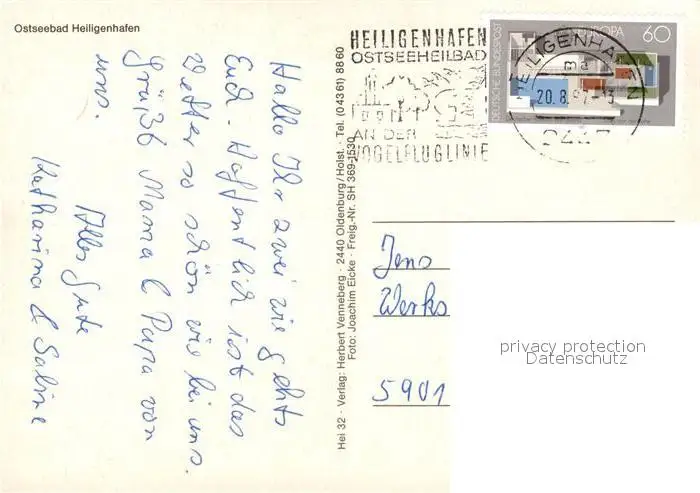 Ostseebad Heiligenhafen
Hallo Ihr zwei wie gehts
Euch. Hoffentlich ist das
Wetter so schön wie bei uns.
Grüßt Mama & Papa von
uns.
Alles Gute
Katharina & Sabine
Hei 32 · Verlag: Herbert Venneberg · 2440 Oldenburg/Holst. · Tel. (04361) 8860
Foto: Joachim Eicke · Freig.-Nr. SH 369-1530
HEILIGENHAFEN
OSTSEEHEILBAD
AN DER
VOGELFLUGLINIE
DEUTSCHE BUNDESPOST
EUROPA
60
HEILIGENHAFEN
ma
20.8.87-13
2447
Jens
Werks
5901
privacy protection
Datenschutz